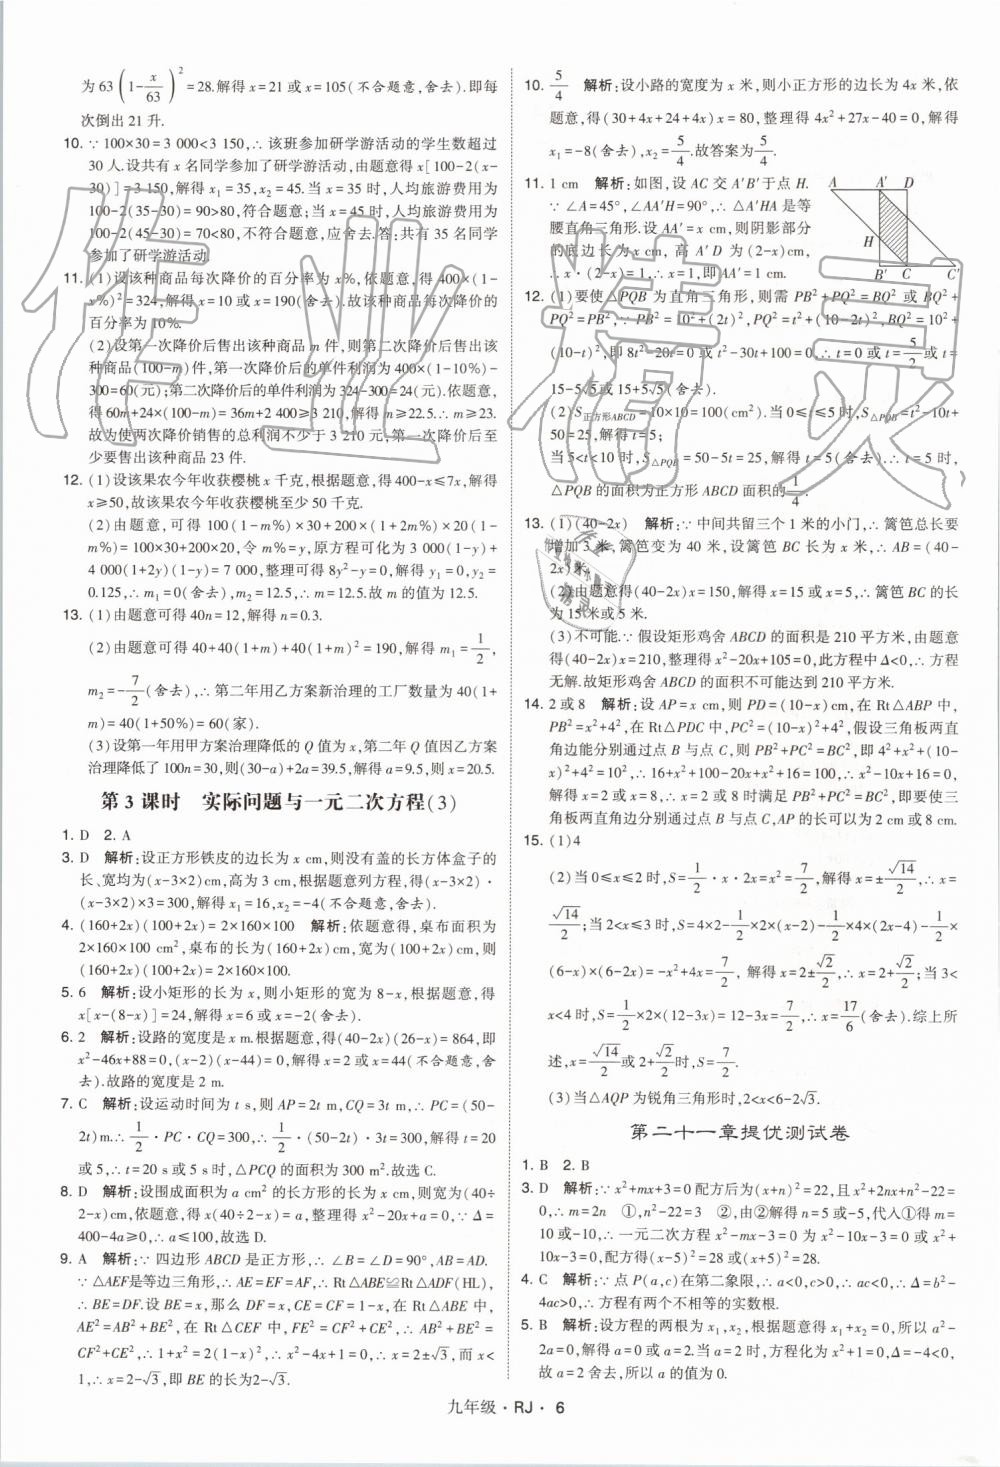 为63(1-x/63)²=28.解得x=21或x=105(不合题意,舍去).即每
次倒出21升.
10. ∵100×30=3 000<3 150,∴该班参加研学游活动的学生数超过
30人.设共有x名同学参加了研学游活动,由题意得x[100-2(x-
30)]=3 150,解得x₁=35,x₂=45.当x=35时,人均旅游费用为
100-2(35-30)=90>80,符合题意;当x=45时,人均旅游费用为
100-2(45-30)=70<80,不符合题意,应舍去.答:共有35名同学
参加了研学游活动.
11. (1)设该种商品每次降价的百分率为x%,依题意,得400×(1-
x%)²=324,解得x=10或x=190(舍去).故该种商品每次降价的
百分率为10%.
(2)设第一次降价后售出该种商品m件,则第二次降价后售出该
种商品(100-m)件,第一次降价后的单件利润为400×(1-10%)-
300=60(元);第二次降价后的单件利润为324-300=24(元).依题意,
得60m+24×(100-m)=36m+2 400≥3 210,解得m≥22.5.∴m≥23.
故为使两次降价销售的总利润不少于3 210元,第一次降价后至
少要售出该种商品23件.
12. (1)设该果农今年收获樱桃x千克,根据题意,得400-x≤7x,解得
x≥50,故该果农今年收获樱桃至少50千克.
(2)由题意,可得100(1-m%)×30+200×(1+2m%)×20(1-
m%)=100×30+200×20,令m%=y,原方程可化为3 000(1-y)+
4 000(1+2y)(1-y)=7 000,整理可得8y²-y=0,解得y₁=0,y₂=
0.125,∴m₁=0(舍去),m₂=12.5,∴m=12.5.故m的值为12.5.
13. (1)由题意可得40n=12,解得n=0.3.
(2)由题意可得40+40(1+m)+40(1+m)²=190,解得m₁=1/2,
m₂=-7/2(舍去),∴第二年用乙方案新治理的工厂数量为40(1+
m)=40(1+50%)=60(家).
(3)设第一年用甲方案治理降低的Q值为x,第二年Q值因乙方案
治理降低了100n=30,则(30-a)+2a=39.5,解得a=9.5,则x=20.5.
第3课时 实际问题与一元二次方程(3)
1. D 2. A
3. D 解析:设正方形铁皮的边长为x cm,则没有盖的长方体盒子的
长、宽均为(x-3×2)cm,高为3 cm,根据题意列方程,得(x-3×2)·
(x-3×2)×3=300,解得x₁=16,x₂=-4(不合题意,舍去).
4. (160+2x)(100+2x)=2×160×100 解析:依题意得,桌布面积为
2×160×100 cm²,桌布的长为(160+2x)cm,宽为(100+2x)cm,则
(160+2x)(100+2x)=2×160×100.
5. 6 解析:设小矩形的长为x,则小矩形的宽为8-x,根据题意,得
x[x-(8-x)]=24,解得x=6或x=-2(舍去).
6. 2 解析:设路的宽度是x m.根据题意,得(40-2x)(26-x)=864,即
x²-46x+88=0,(x-2)(x-44)=0,解得x=2或x=44(不合题意,舍
去).故路的宽度是2 m.
7. C 解析:设运动时间为t s,则AP=2t m,CQ=3t m,∴PC=(50-
2t)m.∴1/2·PC·CQ=300,∴1/2·(50-2t)·3t=300,解得t=20
或5,∴t=20 s或5 s时,△PCQ的面积为300 m².故选C.
8. D 解析:设围成面积为a cm²的长方形的长为x cm,则宽为(40÷
2-x)cm,依题意,得x(40÷2-x)=a,整理得x²-20x+a=0,∵Δ=
400-4a≥0,∴a≤100,故选D.
9. A 解析:∵四边形ABCD是正方形,∴∠B=∠D=90°,AB=AD.
∵△AEF是等边三角形,∴AE=EF=AF,∴Rt△ABE≌Rt△ADF(HL),
∴BE=DF.设BE=x,那么DF=x,CE=CF=1-x,在Rt△ABE中,
AE²=AB²+BE²,在Rt△CEF中,FE²=CF²+CE²,∴AB²+BE²=
CF²+CE²,∴1+x²=2(1-x)²,∴x²-4x+1=0,∴x=2±√3,而x<
1,∴x=2-√3,即BE的长为2-√3.
10. 5/4 解析:设小路的宽度为x米,则小正方形的边长为4x米,依
题意,得(30+4x+24+4x)x=80,整理得4x²+27x-40=0,解得
x₁=-8(舍去),x₂=5/4.故答案为5/4.
11. 1 cm 解析:如图,设AC交A′B′于点H.
∵∠A=45°,∠AA′H=90°,∴△A′HA是等
腰直角三角形.设AA′=x cm,则阴影部分
的底边长为x cm,高A′D为(2-x)cm,
∴x·(2-x)=1,∴x=1,即AA′=1 cm.
A A′ D
H
B′ C C′
12. (1)要使△PQB为直角三角形,则需PB²+PQ²=BQ²或BQ²+
PQ²=PB²,∵PB²=10²+(2t)²,PQ²=t²+(10-2t)²,BQ²=10²+
(10-t)²,即8t²-20t=0或t²-30t+100=0,∴t=0或t=5/2或t=
15-5√5或15+5√5(舍去).
(2)S正方形ABCD=10×10=100(cm²).当0≤t≤5时,S△PQB=t²-10t+
50=25,解得t=5;
当5<t<10时,S△PQB=50-5t=25,解得t=5(舍去).∴t=5时,
△PQB的面积为正方形ABCD面积的1/4.
13. (1)(40-2x) 解析:∵中间共留三个1米的小门,∴篱笆总长要
增加3米,篱笆变为40米,设篱笆BC长为x米,∴AB=(40-
2x)米.
(2)由题意得(40-2x)x=150,解得x=15或x=5,∴篱笆BC的长
为15米或5米.
(3)不可能.∵假设矩形鸡舍ABCD的面积是210平方米,由题意
得(40-2x)x=210,整理得x²-20x+105=0,此方程中Δ<0,∴方程
无解.故矩形鸡舍ABCD的面积不可能达到210平方米.
14. 2或8 解析:设AP=x cm,则PD=(10-x)cm,在Rt△ABP中,
PB²=x²+4²,在Rt△PDC中,PC²=(10-x)²+4²,假设三角板两直
角边能分别通过点B与点C,则PB²+PC²=BC²,即4²+x²+(10-
x)²+4²=10²,∴16+x²+100-20x+x²+16=100,∴x²-10x+16=0,
解得x=2或x=8,∴x=2或8时满足PB²+PC²=BC²,即要使三
角板两直角边分别通过点B与点C,AP的长可以为2 cm或8 cm.
15. (1)4
(2)当0≤x≤2时,S=1/2·x·2x=x²=7/2,解得x=±√14/2,∴x=
√14/2;当2<x≤3时,S=4×2-1/2×2×(x-2)-1/2×4×(2x-4)-1/2×
(6-x)×(6-2x)=-x²+4x=7/2,解得x=2±√2/2,∴x=2+√2/2;当3<
x<4时,S=1/2×2×(12-3x)=7/2,∴12-3x=7/2,∴x=17/6(舍去).综上所
述,x=√14/2或2+√2/2时,S=7/2.
(3)当△AQP为锐角三角形时,2<x<6-2√3.
第二十一章提优测试卷
1. B 2. B
3. D 解析:∵x²+mx+3=0配方后为(x+n)²=22,且x²+2nx+n²-22=
0,∴m=2n ①,n²-22=3 ②,由②解得n=5或-5,代入①得m=
10或-10,∴一元二次方程x²-mx-3=0为x²-10x-3=0或x²+
10x-3=0,配方得(x-5)²=28或(x+5)²=28.
4. C 解析:∵点P(a,c)在第二象限,∴a<0,c>0,∴ac<0,∴Δ=b²-
4ac>0,∴方程有两个不相等的实数根.
5. B 解析:设方程的两根为x₁,x₂,根据题意得x₁+x₂=0,所以a²-
2a=0,解得a=0或a=2.当a=2时,方程化为x²+1=0,Δ=-4<0,
故a=2舍去,所以a的值为0.
九年级·RJ·6
作业精灵